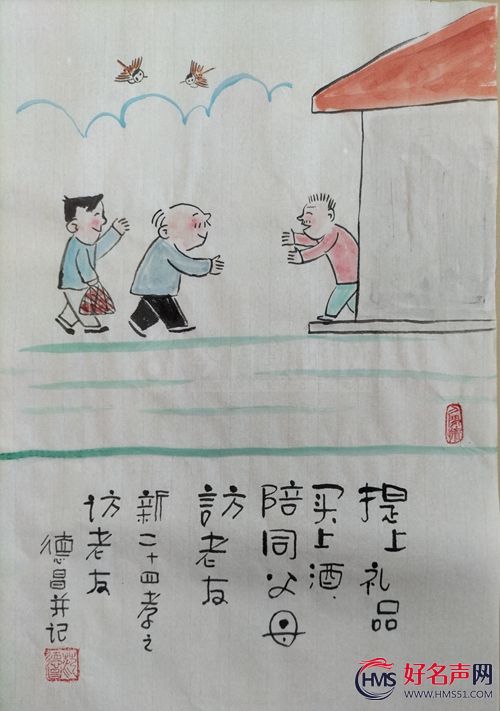 提上礼品
买上酒、
陪同父母
訪老友
新二十四孝之
访老友
德昌并记
HMS
好名声网
WWW.HMS51.COM